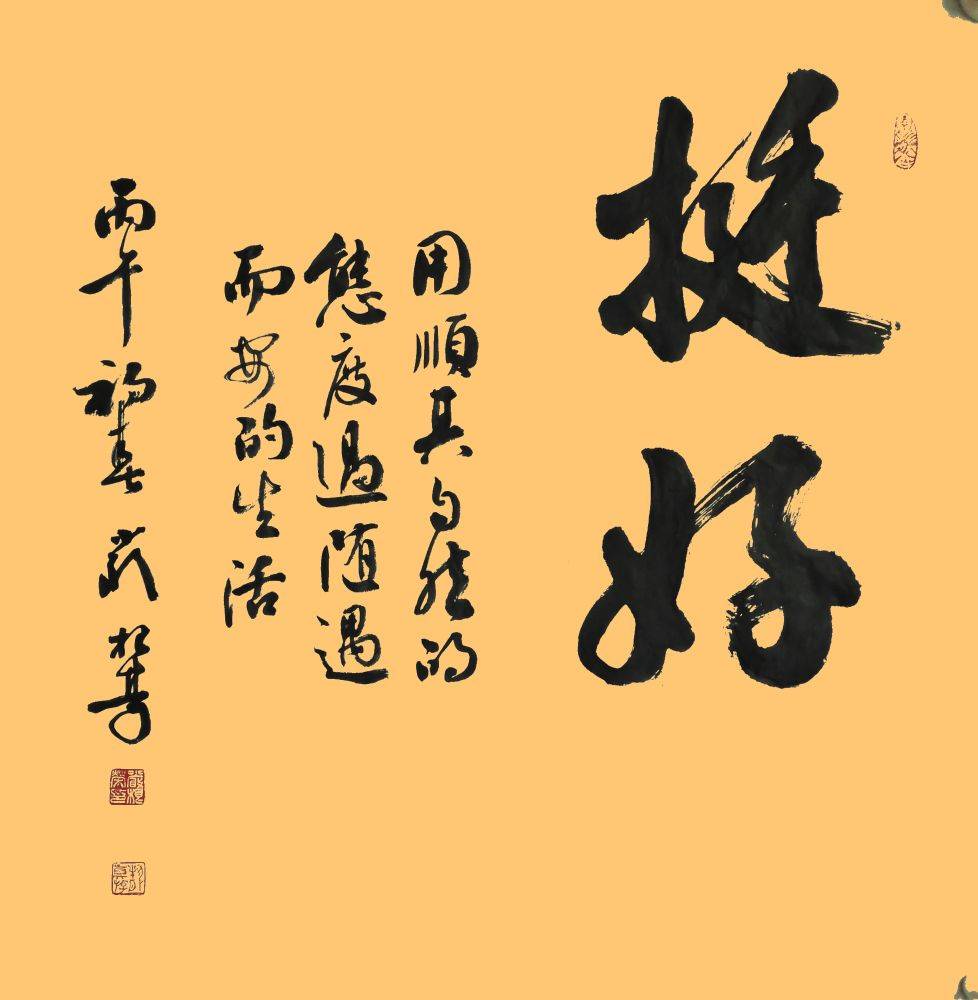 挺好
用順其自然的
態度過随遇
而安的生活
丙午初春